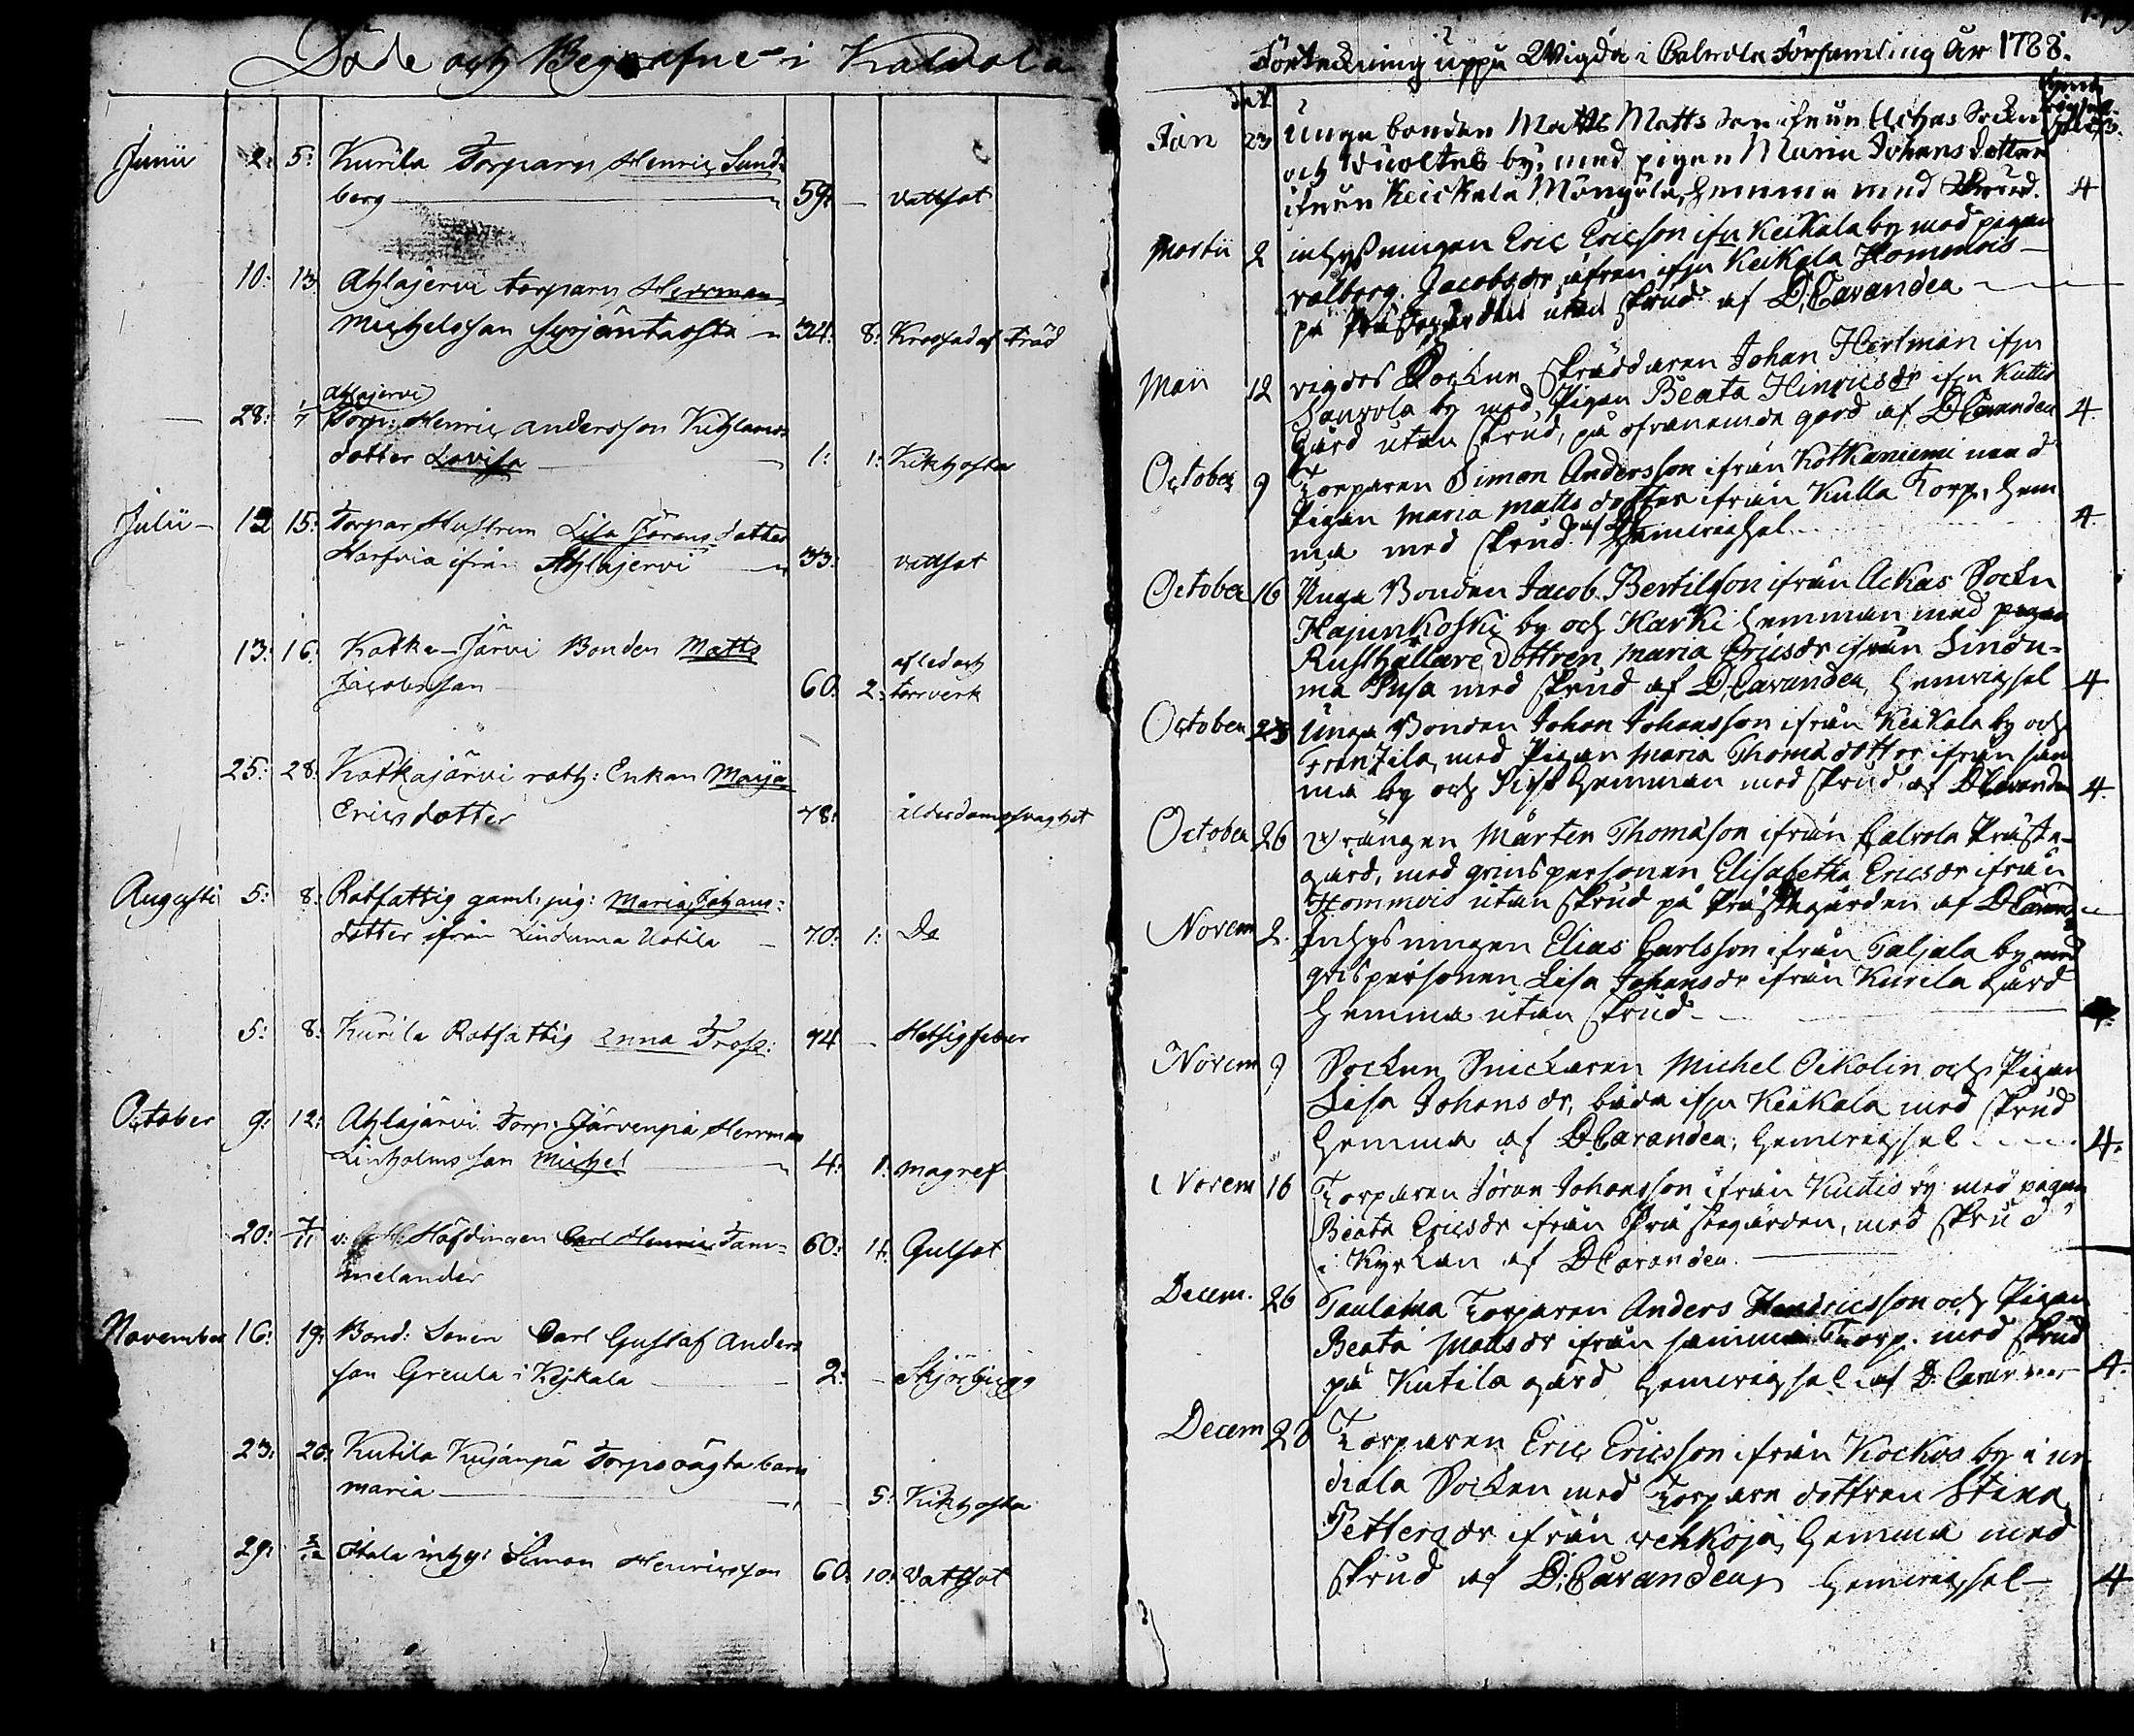 Döde och Begrafne i Kalvola
Junii 2: 5: Kurila Torparn Henric Sund-
berg 59: — vattsot
10: 13 Ahlajervi torparn Herrman
Michelsson Syrjäntaosta 34: 8: Krossad af träd
Ahlajervi
28: 1/7 Torp: Henric andersson Kihlamos
dotter Lovisa 1: 1: Kikhosta
Julii 12 15: Torpar Hustrun Lisa Jörans dotter
Harfvia ifrån Ahlajervi 33: vattsot
13: 16: Kotka-Järvi Bonden Matts
Jacobsson 60: 2: afled och torrverk
25: 28: Kotkajärvi roth: Enkan Marja
Ericsdotter 78: ålderdomsvaghet
Augusti 5: 8: Rotfattig gaml. pig: Maria Johans:
dotter ifrån Linduma Uotila 70: 1: Do
5: 8: Kurila Rotfattig Anna Frosp: 74 — Hetsigfeber
October 9: 12: Ahlajärvi Torp: Järvenpä Herrman
Linholms son Michel 4: 1: magref
20: 7/11 v. Höfdingen Carl Henric Tam-
melander 60: 4: Gulsot
November 16: 19: Bond: Sonen Carl Gustaf Anders
son Greula i Kejkala 2: — Skjörbjugg
23: 26: Kutila Kujanpä Torpo oägta barn
maria — 5: Kikhosta
29: 3/12 Itala inhy: Simon Henricsson 60: 10: Vattsot
Förteckning uppå Wigda i Calvola Församling År 1788.
dat.
Jan 23 Unga bonden Matts Matts Son ifrån Uchas Sockn
och Vuoltes by, med pigan Maria Johans dotter
ifrån Keickala Mongola, hemma med Skrud. 4
Martii 2 inhysningen Eric Ericson ifrn Keikala by med pigan
valborg Jacobsdr äfven ifrn Keikala Hommois
på Prästegården utan skrud af D. Cavander
Maii 12 vigdes Sockne Skräddaren Johan Hertman ifrn
Sauvola by med Pigan Beata Hinricsdr ifrn Kuttis
Gård utan skrud, på ofvanemde gård af D Cavander 4
October 9 Torparen Simon Andersson ifrån Kotkaniemi med
Pigan Maria Matts dotter ifrån Kulla Torp, hem
ma med skrud af Hemvighsel 4
October 16 Unga Bonden Jacob Bertilson ifrån Ackas Sockn
Hajunkoski by och Karki hemman med pigan
Rusthållare dottren Maria Ericsdr ifrån Lindu-
ma Pusa med skrud af D. Cavander, hemvighsel 4
October 23 Unga Bonden Johan Johansson ifrån Keikala by och
Frantzila, med Pigan Maria Thomædotter ifrån sam
ma by och hemman med skrud af D Cavander 4
October 26 Drängen Mårten Thomæson ifrån Calvola Präste-
gård, med qvinspersonen Elisabetha Ericsdr ifrån
Hommois utan skrud på Prästegården af D Cavand
Novem 2. Inhysningen Elias Carlsson ifrån Taljala by med
qvinspersonen Lisa Johansdr ifrån Kurila Gård
hemma utan skrud
Novem 9 Sockne Snickaren Michel Ockolin och Pigan
Lisa Johansdr, båda ifrn Keikala med skrud
hemma af D Cavander, hemvighsel 4.
Novem 16 Torparen Jöran Johansson ifrån Kuttis by med pigan
Beata Ericsdr ifrån Prästegården, med skrud
i Kyrkan af D Cavander
Decem. 26 Taulama Torparen Anders Hendricsson och Pigan
Beata Mattsdr ifrån samma Torp. med skrud
på Kutila gård hemvighsel af D. Cavander 4.
Decem 28 Torparen Eric Ericsson ifrån Kockos by i ur
diala Socken med Torpare dottren Stina
Pettersdr ifrån rehkoja, hemma med
skrud af D. Cavander, hemvighsel 4